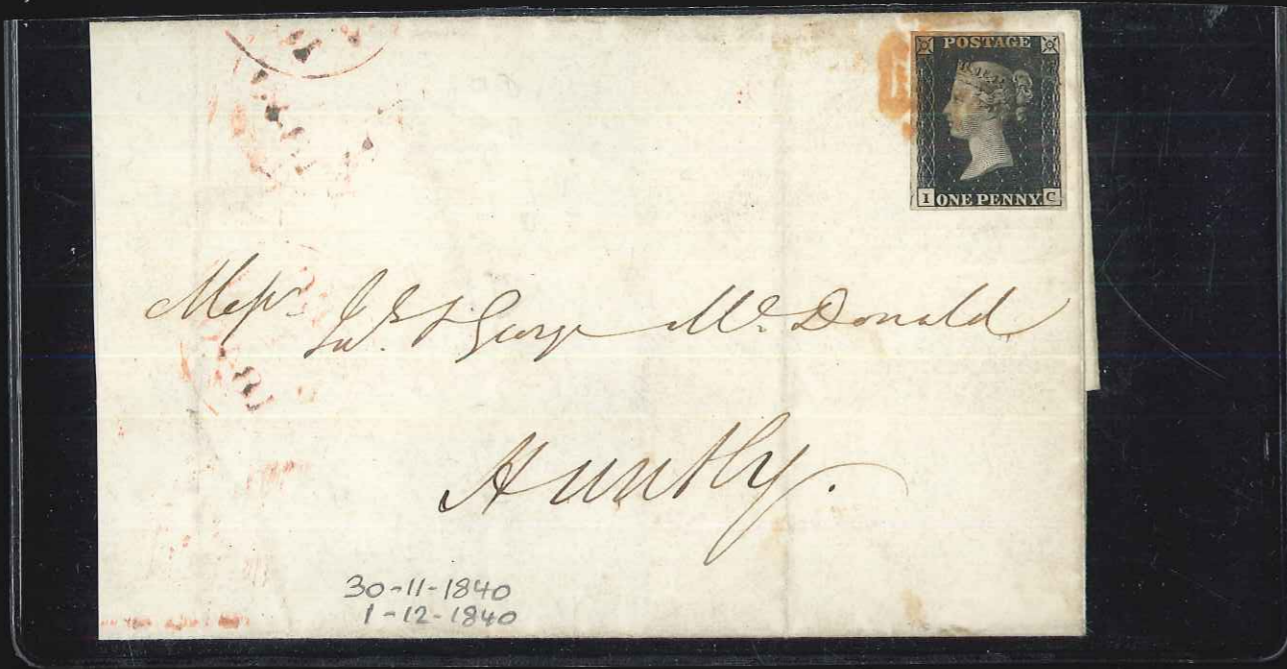 POSTAGE
I ONE PENNY. C
Messrs Jas. & George Mc. Donald
Huntly.
30-11-1840
1-12-1840